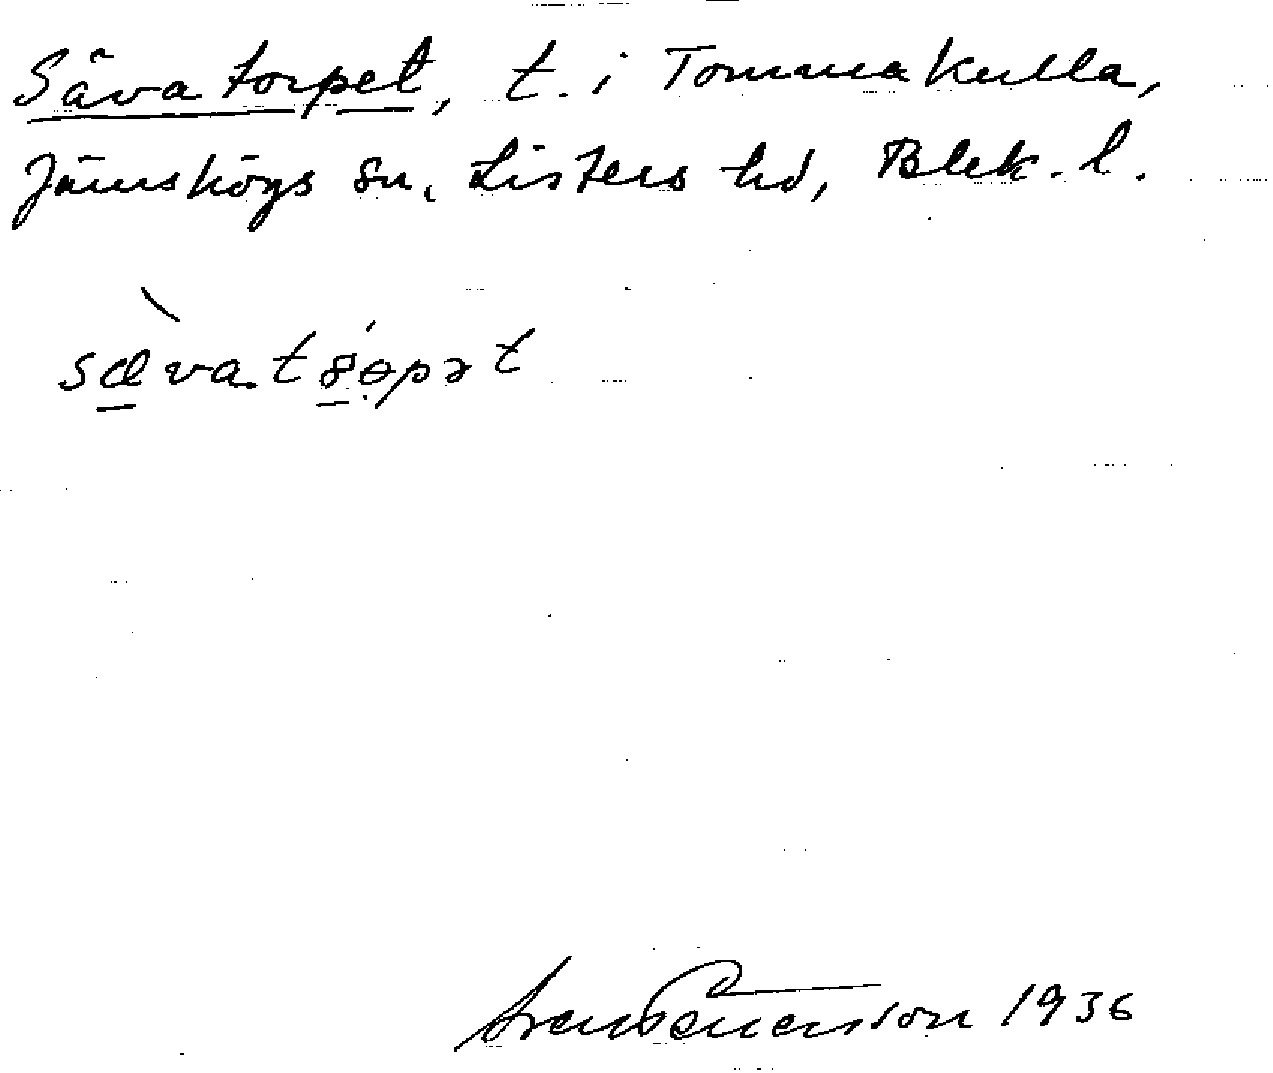 Sävatorpet, t. i Tommakulla,
Jämshögs sn, Listers hd, Blek. l.
sævatȣɵpət
Sven Benson 1936